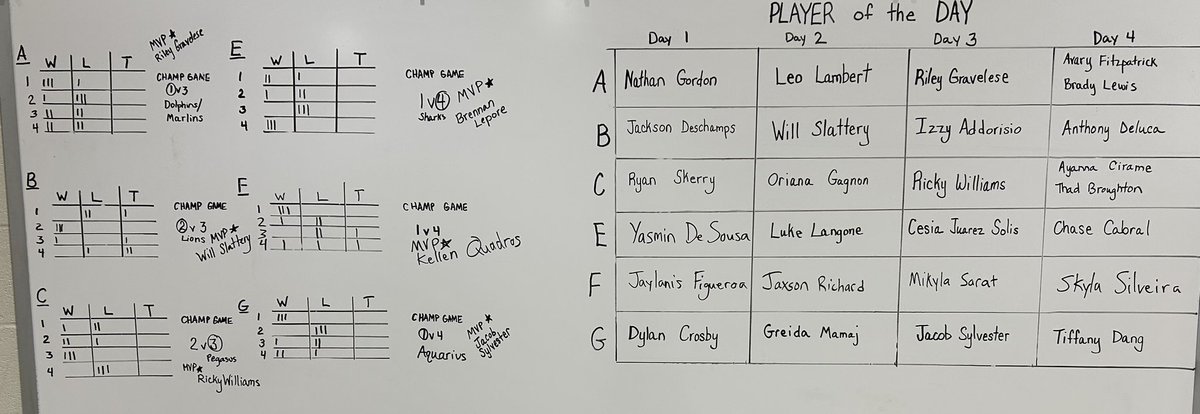 A
W L T
1 III I
2 I III
3 II II
4 II II
MVP★
Riley Gravelese
CHAMP GAME
①v3
Dolphins/
Marlins
E
W L T
1 II I
2 I II
3 III
4 III
CHAMP GAME
1v④ MVP★
Sharks Brennan
Lepore
B
W L T
1 II I
2 III
3 I I
4 I II
CHAMP GAME
②v3
Lions MVP★
Will Slattery
F
W L T
1 III
2 I II
3 II I
4 I I I
CHAMP GAME
1v4
MVP★
Kellen Quadros
C
W L T
1 I II
2 II I
3 III
4 III
CHAMP GAME
2v③
Pegasus
MVP★
Ricky Williams
G
W L T
1 III
2 III
3 I II
4 II I
CHAMP GAME
①v4
Aquarius
MVP★
Jacob
Sylvester
PLAYER of the DAY
Day 1 Day 2 Day 3 Day 4
A Nathan Gordon Leo Lambert Riley Gravelese Avary Fitzpatrick
Brady Lewis
B Jackson Deschamps Will Slattery Izzy Addorisio Anthony Deluca
C Ryan Skerry Oriana Gagnon Ricky Williams Ayanna Cirame
Thad Broughton
E Yasmin De Sousa Luke Langone Cesia Juarez Solis Chase Cabral
F Jaylanis Figueroa Jaxson Richard Mikyla Sarat Skyla Silveira
G Dylan Crosby Greida Mamaj Jacob Sylvester Tiffany Dang